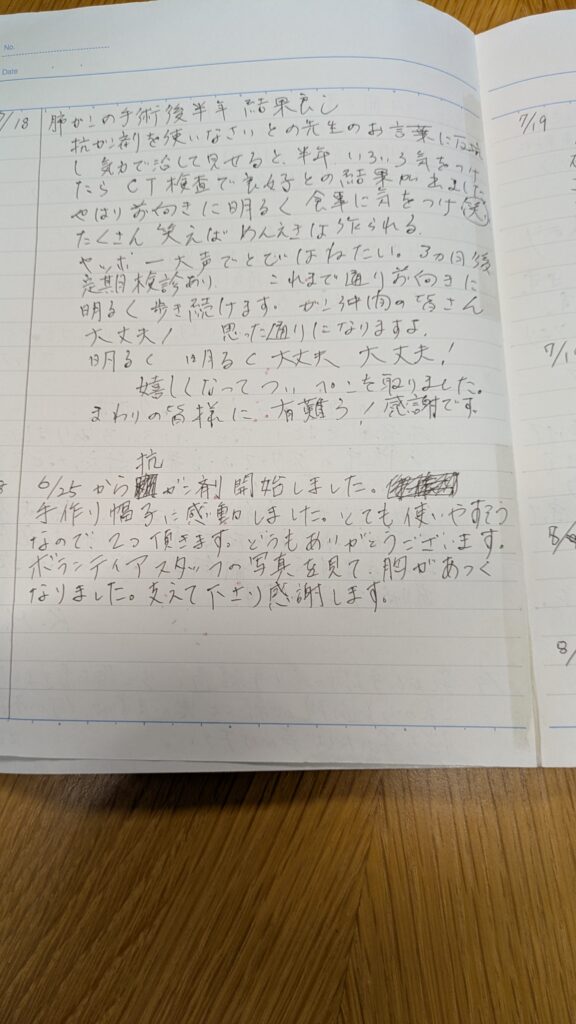 No.
Date
7/18 肺がんの手術後半年 結果良し
抗がん剤を使いなさいとの先生のお言葉に反抗
し気力で治して見せると、半年、いろいろ気をつけ
たらCT検査で良好との結果が出ました
やはり前向きに明るく食事に気をつけ(笑)
たくさん笑えばめんえきは作られる。
ヤッホー大声でとびはねたい。3カ月後
定期検診あり これまで通り前向きに
明るく歩き続けます。ガン仲間の皆さん
大丈夫! 思った通りになりますよ。
明るく 明るく 大丈夫 大丈夫!
嬉しくなってついペンを取りました。
まわりの皆様に、有難う! 感謝です。
抗
6/25からガン剤開始しました。
手作り帽子に感動しました。とても使いやすそう
なので、2つ頂きます。どうもありがとうございます。
ボランティアスタッフの写真を見て、胸があつく
なりました。支えて下さり感謝します。
7/19
8/